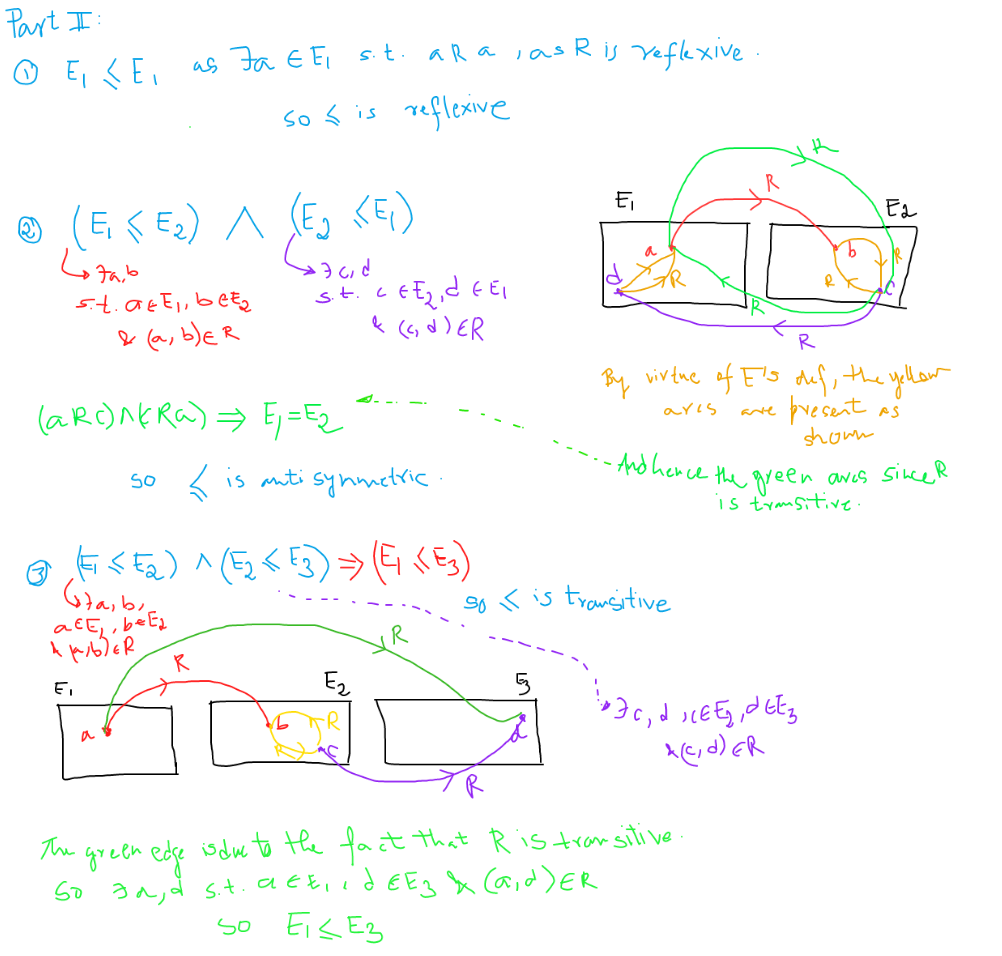 Part II:
① E₁ ⩽ E₁ as ∃a ∈ E₁ s.t. a R a , as R is reflexive.
so ⩽ is reflexive
② (E₁ ⩽ E₂) ∧ (E₂ ⩽ E₁)
∃a,b
s.t. a∈E₁, b∈E₂
& (a,b)∈R
∃c,d
s.t. c∈E₂, d∈E₁
& (c,d)∈R
E₁ E₂
R
R
a b
d c
R R
R
R
R
By virtue of E's def, the yellow
arcs are present as
shown
(aRc)∧(cRa) ⇒ E₁=E₂
And hence the green arcs since R
is transitive.
so ⩽ is anti symmetric.
③ (E₁ ⩽ E₂) ∧ (E₂ ⩽ E₃) ⇒ (E₁ ⩽ E₃)
so ⩽ is transitive
∃a,b,
a∈E₁, b∈E₂
& (a,b)∈R
R
R
E₁ E₂ E₃
a b R d
R c
R
∃c,d, c∈E₂, d∈E₃
& (c,d)∈R
The green edge is due to the fact that R is transitive.
So ∃a,d s.t. a∈E₁, d∈E₃ & (a,d)∈R
so E₁⩽E₃